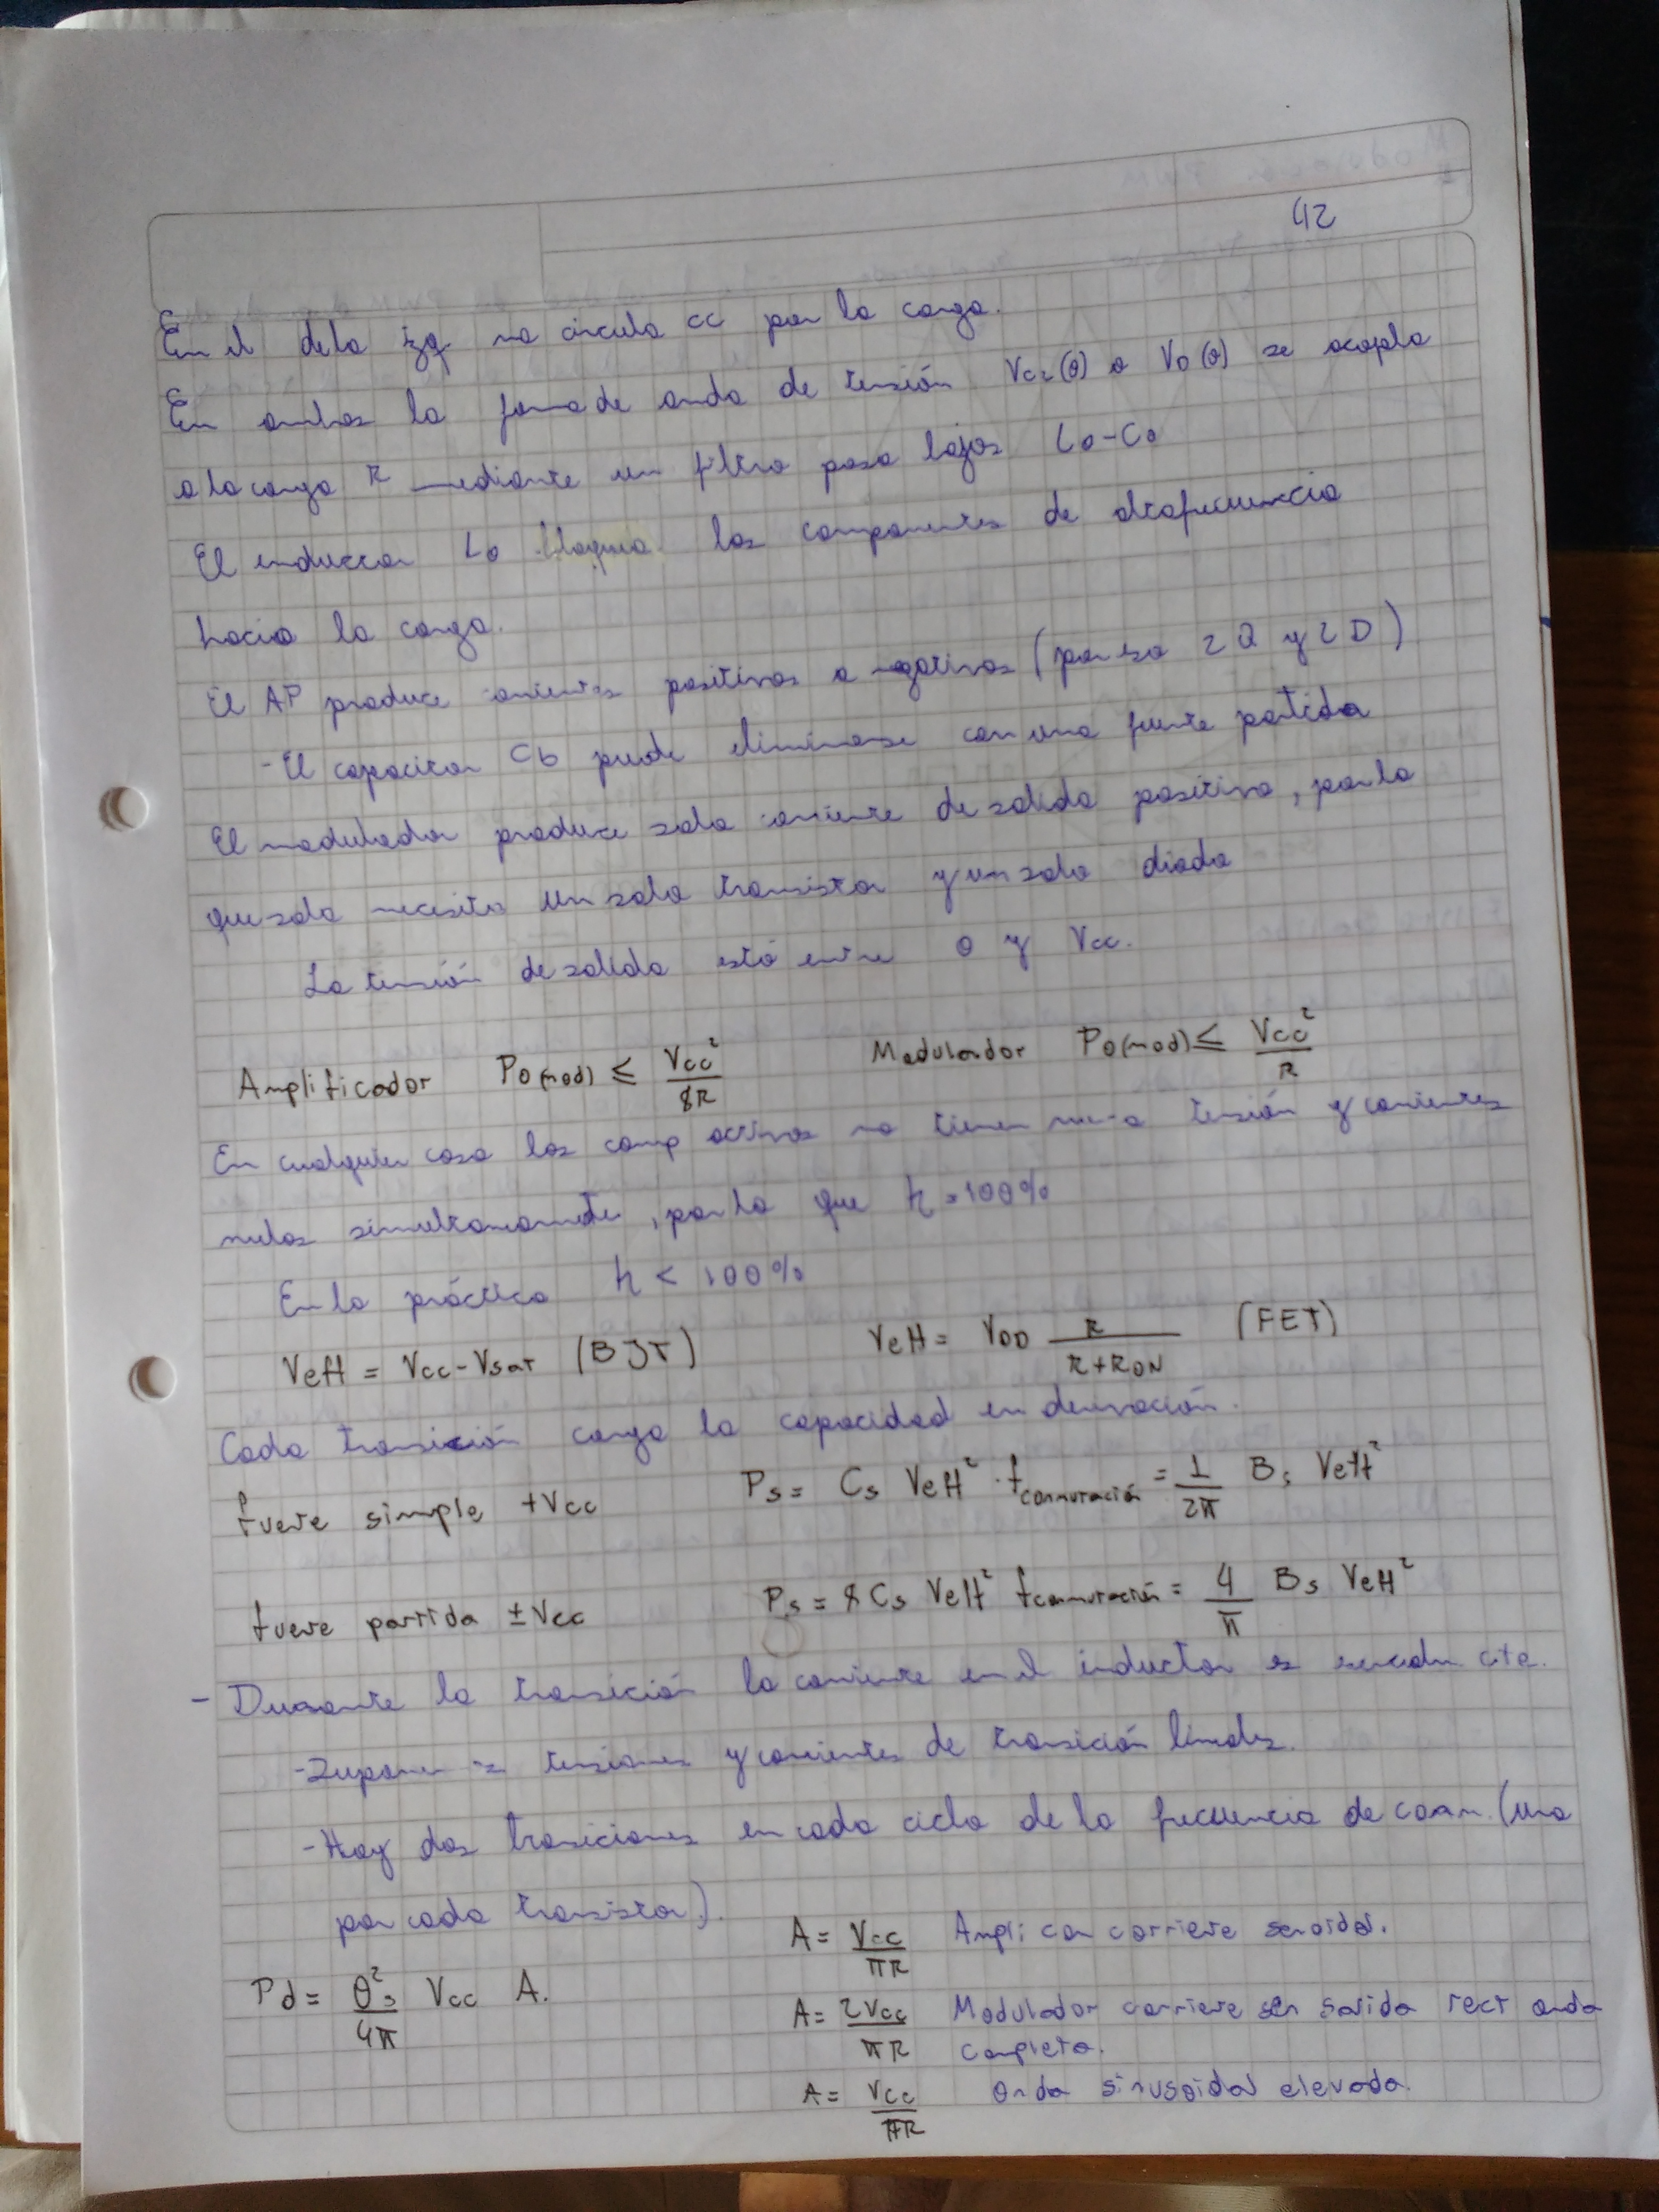 42
En el de la izq no circula cc por la carga.
En ambos la forma de onda de tensión Vc2(θ) o VD(θ) se acopla
a la carga R mediante un filtro pasa bajos Lo-Co
El inductor Lo bloquea los componentes de alta frecuencia
hacia la carga.
El AP produce corrientes positivas o negativas (por eso 2Q y 2D)
- El capacitor Cb puede eliminarse con una fuente partida
El modulador produce solo corriente de salida positiva, por lo
que solo necesita un solo transistor y un solo diodo
La tensión de salida está entre 0 y Vcc.
Amplificador Po(mod) ≤ Vcc²/8R Modulador Po(mod) ≤ Vcc²/R
En cualquier caso los comp activos no tienen nunca tensión y corrientes
nulas simultaneamente, por lo que η = 100%
En la práctica η < 100%
Veff = Vcc - Vsat (BJT) Veff = VDD R/(R+RON) (FET)
Cada transición carga la capacidad en derivación.
fuente simple +Vcc Ps = Cs Veff² · fconmutación = 1/2π Bs Veff²
fuente partida ±Vcc Ps = 8 Cs Veff² fconmutación = 4/π Bs Veff²
- Durante la transición la corriente en el inductor es cte.
- tensiones y corrientes de transición lineales.
- Hay dos transiciones en cada ciclo de la frecuencia de conm. (una
por cada transistor).
Pd = θs²/4π Vcc A.
A = Vcc/πR Ampli con corriente senoidal.
A = 2Vcc/πR Modulador corriente sen salida rect onda
completa.
A = Vcc/πR Onda sinusoidal elevada.